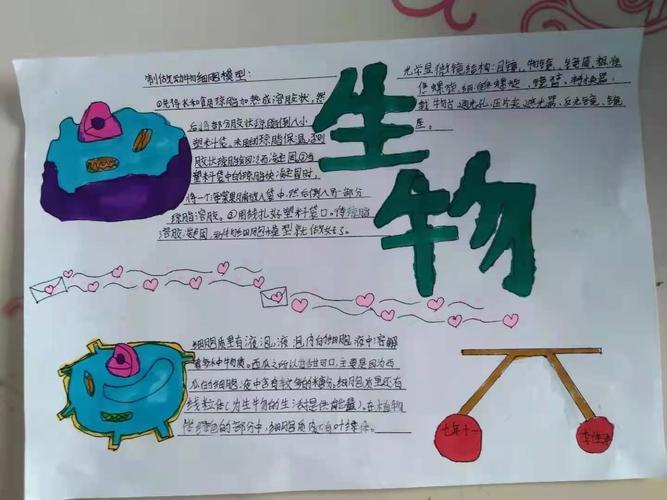 制做动物细胞模型:
①先将水和琼脂加热成溶胶状,然
后将部分胶状琼脂倒入小
塑料袋。
塑料袋中的琼脂快凝固时,
将一个苹果脯放入袋中,然后倒入另一部分
琼脂溶胶。④用线扎好塑料袋口。待琼脂
溶胶凝固,动物细胞模型就做好了。
生
物
光学显微镜结构:目镜、物镜、镜筒、粗准
焦螺旋、细准焦螺旋、镜臂、转换器、
载物台、通光孔、压片夹、遮光器、反光镜、镜
座。
细胞质里有液泡,液泡内的细胞液中溶解
着多种物质。西瓜之所以甘甜可口,主要是因为西
瓜的细胞液中含有较多的糖分,细胞质里还有
线粒体(为生物的生活提供能量)。在植物
体绿色的部分中,细胞质内还有叶绿体。
七年十一